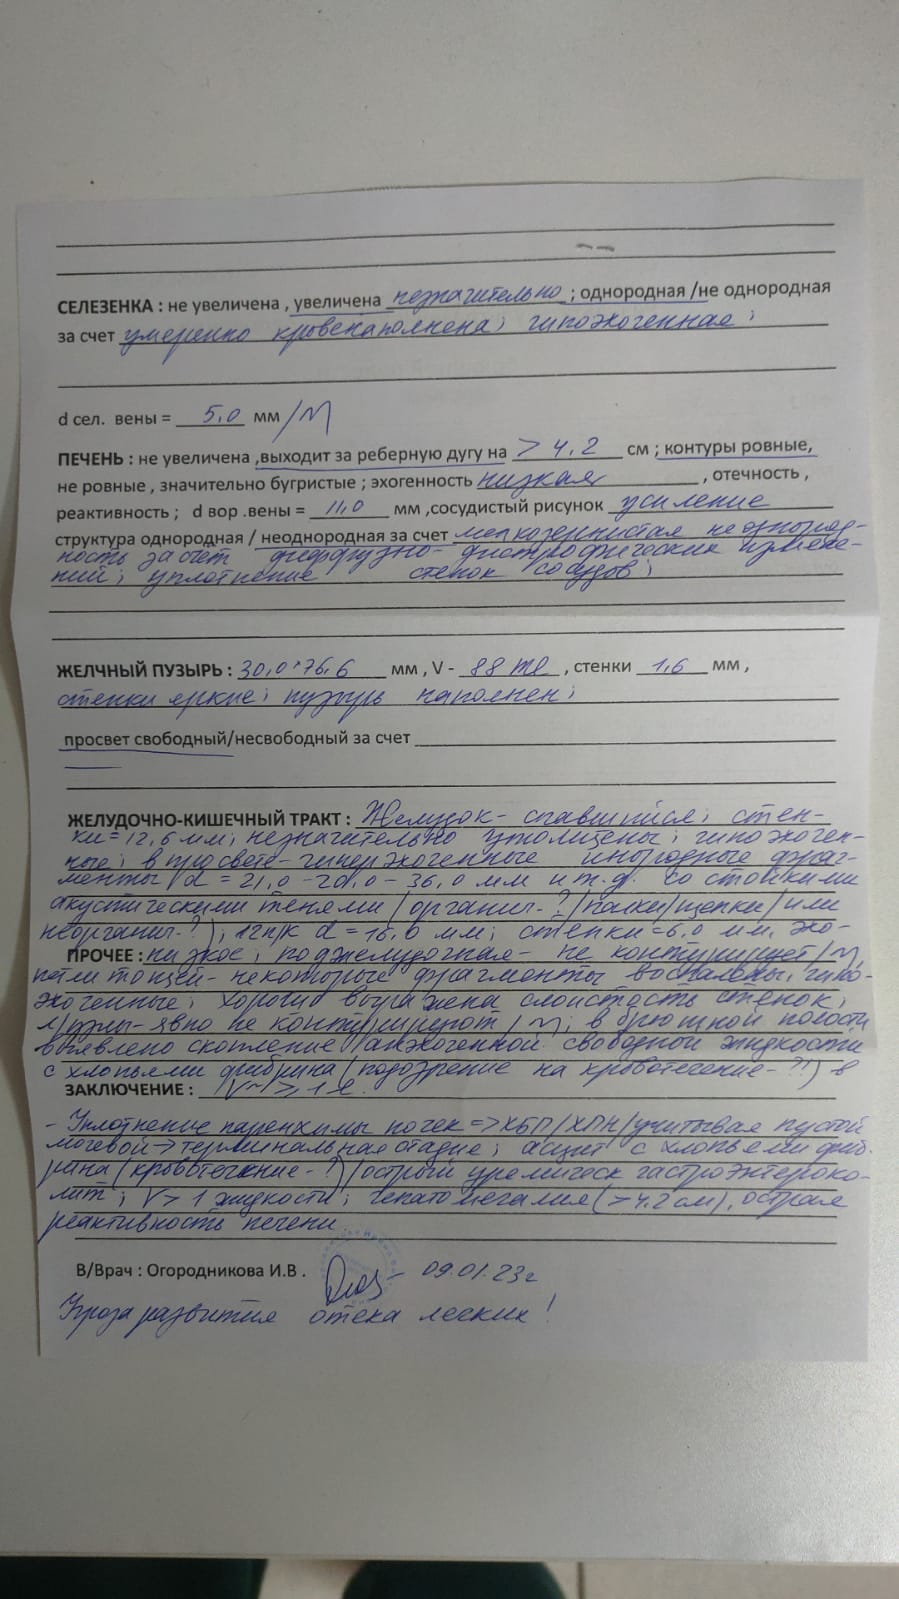 СЕЛЕЗЕНКА : не увеличена , увеличена незначительно ; однородная /не однородная
за счет умеренно кровенаполнена; гипоэхогенная;
d сел. вены = 5,0 мм /N
ПЕЧЕНЬ : не увеличена ,выходит за реберную дугу на > 4,2 см ; контуры ровные,
не ровные , значительно бугристые ; эхогенность низкая , отечность ,
реактивность ; d вор .вены = 11,0 мм ,сосудистый рисунок усиление
структура однородная / неоднородная за счет мелкозернистая неоднород-
ность за счет диффузно- дистрофических измене-
ний; уплотнение стенок сосудов;
ЖЕЛЧНЫЙ ПУЗЫРЬ : 30,0*76,6 мм , V - 88 ml , стенки 1,6 мм ,
стенки яркие; пузырь наполнен;
просвет свободный/несвободный за счет
ЖЕЛУДОЧНО-КИШЕЧНЫЙ ТРАКТ : Желудок- спавшийся; стен-
ки=12,6 мм; незначительно утолщены; гипоэхоген-
ные; в просвете- гиперэхогенные инородные фраг-
менты d = 21,0 -20,0 - 36,0 мм и т.д. со стойкими
акустическими тенями (органич-? /палки/щепки/ или
неорганич-?), 12п/к d = 16,0 мм; стенки=6,0 мм, эхо-
ПРОЧЕЕ : низкое; поджелудочная- не контурирует /N,
петли тощей- некоторые фрагменты воспалены, гипо-
эхогенные; хорошо выражена слоистость стенок;
л/узлы- явно не контурируют /N; в брюшной полости
выявлено скопление анэхогенной свободной жидкости
с хлопьями фибрина (подозрение на кровотечение-?!) в
ЗАКЛЮЧЕНИЕ : V~ > 1 л.
- Уплотнение паренхимы почек => ХБП/ХПН/учитывая пустой
мочевой→терминальная стадия; асцит с хлопьями фиб-
рина (кровотечение-?)/острый уремическ гастроэнтероко-
лит; V> 1 жидкости; гепатомегалия (>4,2 см), острая
реактивность печени.
В/Врач : Огородникова И.В . 09.01.23г
Угроза развития отека легких!